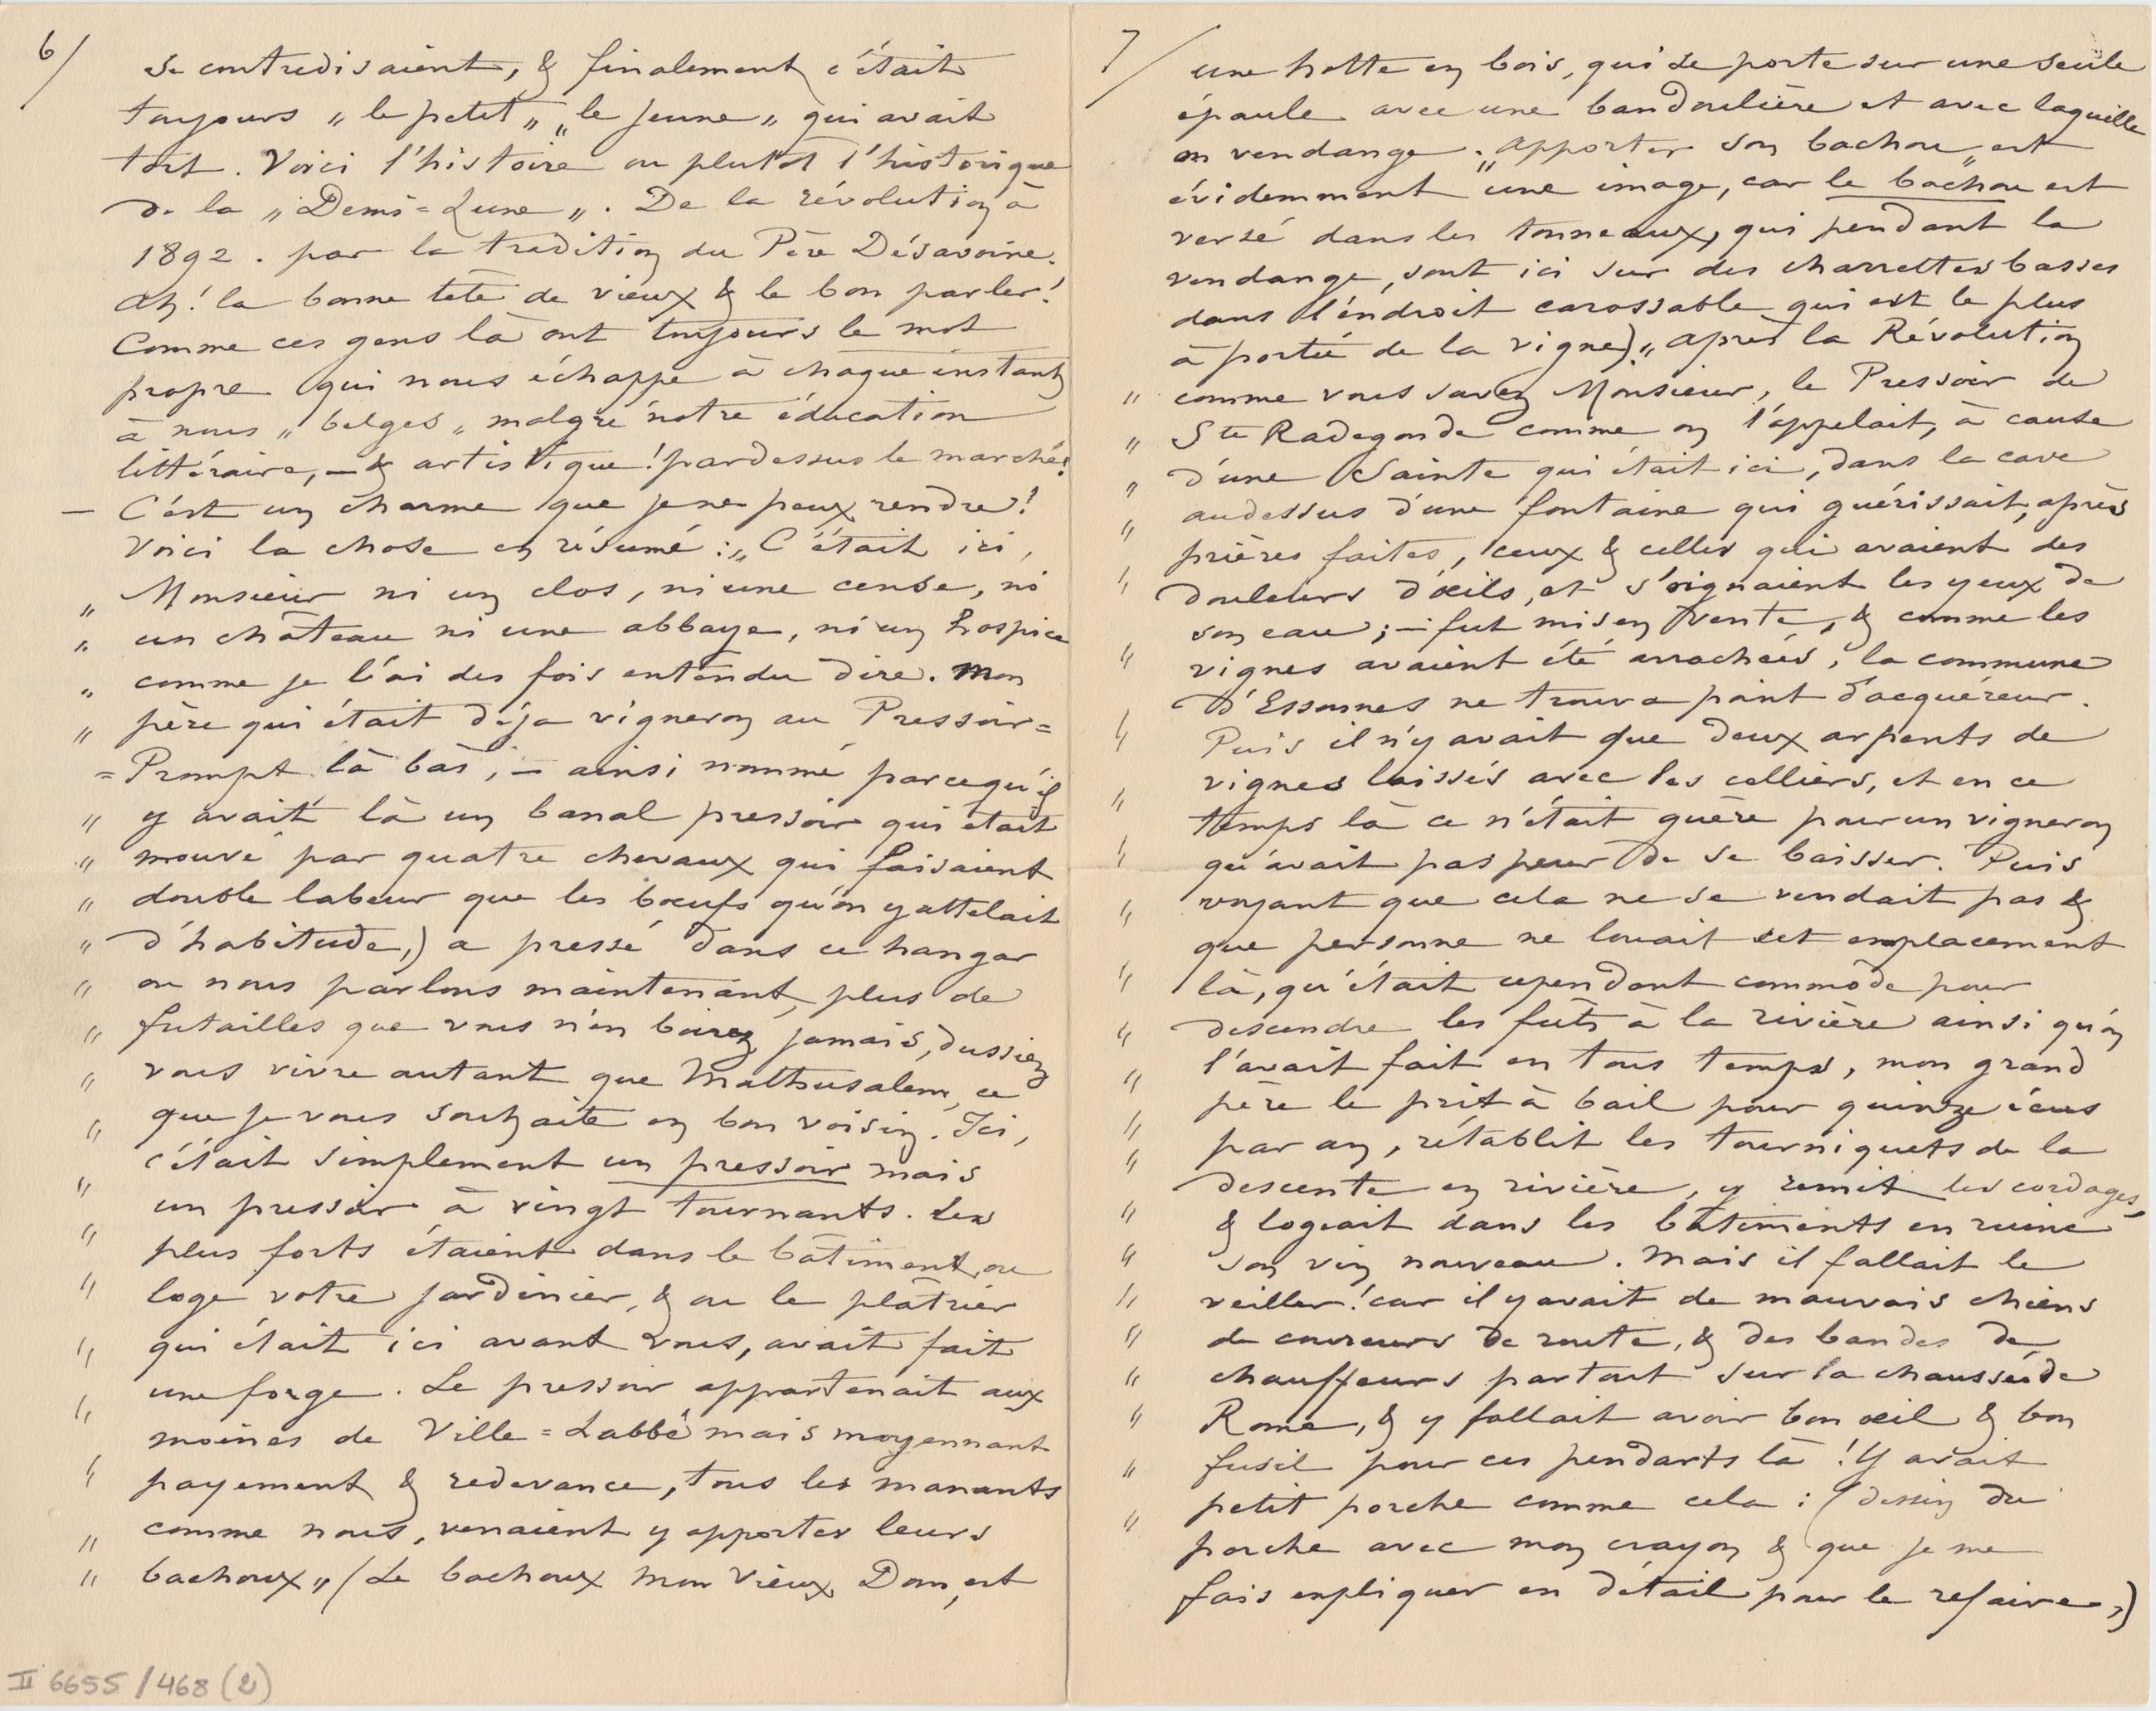 6/
se contredisaient, & finalement c'était
toujours „le petit„ „le jeune„ qui avait
tort. Voici l'histoire ou plutôt l'historique
de la „Demi=Lune„. De la révolution à
1892. par la tradition du Père Désavoine.
Ah! la bonne tête de vieux & le bon parler!
Comme ces gens là ont toujours le mot
propre qui nous échappe à chaque instant
à nous „belges„ malgré notre éducation
littéraire, – & artistique! pardessus le marché!
– C'est un charme que je ne peux rendre!
Voici la chose en résumé: „C'était ici,
„ Monsieur ni un clos, ni une cense, ni
„ un château ni une abbaye, ni un hospice
„ comme je l'ai des fois entendu dire. Mon
„ père qui était déja vigneron au Pressoir=
=Prompt là bàs, – ainsi nommé parcequ'il
„ y avait là un banal pressoir qui était
„ mouvé par quatre chevaux qui faisaient
„ double labeur que les bœufs qu'on y attelait
„ d'habitude,) a pressé dans ce hangar
„ ou nous parlons maintenant, plus de
„ futailles que vous n'en boirez jamais, dussiez
„ vous vivre autant que Mathusalem, ce
„ que je vous souhaite en bon voisin. Ici,
c'était simplement un pressoir mais
„ un pressoir à vingt tournants. Les
„ plus forts étaient dans le bâtiment ou
„ loge votre jardinier, & ou le plâtrier
„ qui était ici avant vous, avait fait
„ une forge. Le pressoir appartenait aux
moines de Ville=Labbé mais moyennant
„ payement & redevance, tous les manants
„ comme nous, venaient y apporter leurs
„ bachoux„ (Le bachoux mon vieux Dom, est
II 6655/468 (2)
7/
une hotte en bois, qui se porte sur une seule
épaule avec une bandoulière et avec laquelle
on vendange. „Apporter son bachou„ est
évidemment une image, car le bachou est
versé dans les tonneaux, qui pendant la
vendange, sont ici sur des charrettes basses
dans l'endroit carossable qui est le plus
à portée de la vigne). „Après la Révolution
„ comme vous savez Monsieur, le Pressoir de
„ Ste Radegonde comme on l'appelait, à cause
„ d'une Sainte qui était ici, dans la cave
„ audessus d'une fontaine qui guérissait, après
prières faites, ceux & celles qui avaient des
„ douleurs d'œils, et s'oignaient les yeux de
son eau; – fut mis en vente, & comme les
„ vignes avaient été arrachées, la commune
d'Essonnes ne trouva point d'acquéreur.
„ Puis il n'y avait que deux arpents de
vignes laissés avec les celliers, et en ce
„ temps là ce n'était guère pour un vigneron
„ qu'avait pas peur de se baisser. Puis
„ voyant que cela ne se vendait pas &
que personne ne louait cet emplacement
„ là, qu'était cependant commode pour
„ descendre les fûts à la rivière ainsi qu'on
l'avait fait en tous temps, mon grand
„ père le prit à bail pour quinze écus
„ par an, rétablit les tourniquets de la
„ descente en rivière, y remit les cordages,
„ & logeait dans les bâtiments en ruine
„ son vin nouveau. Mais il fallait le
„ veiller! car il y avait de mauvais chiens
„ de coureurs de route, & des bandes de
„ chauffeurs partout sur la chaussée de
„ Rome, & y fallait avoir bon œil & bon
„ fusil pour ces pendarts là! Y avait
„ petit porche comme cela: (dessin du
porche avec mon crayon & que je me
fais expliquer en détail pour le refaire,)